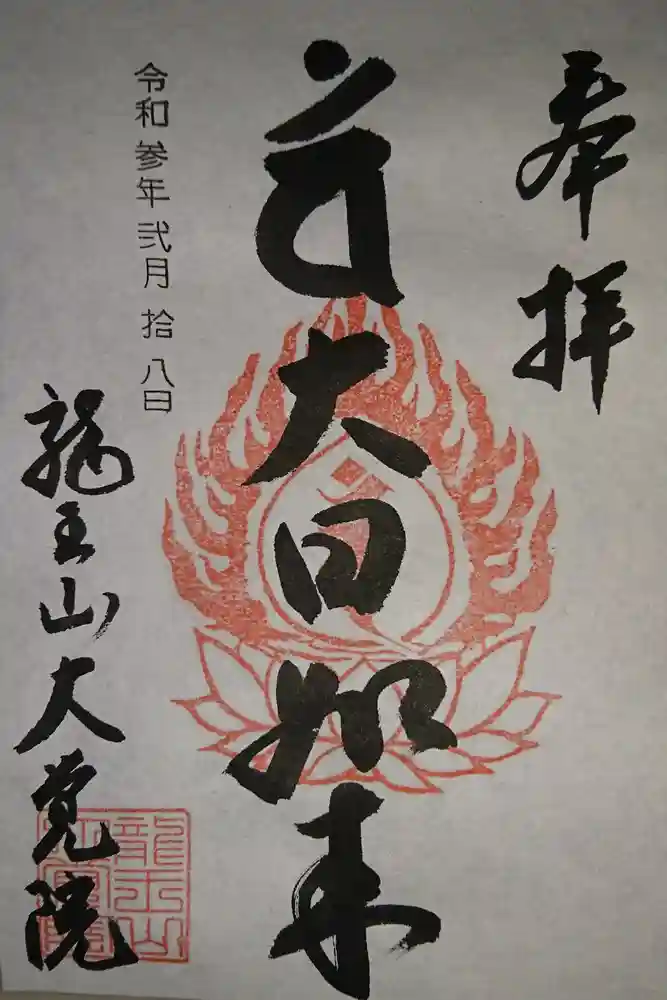 奉拝
大日如来
令和参年弐月拾八日
龍王山大覚院
龍王山